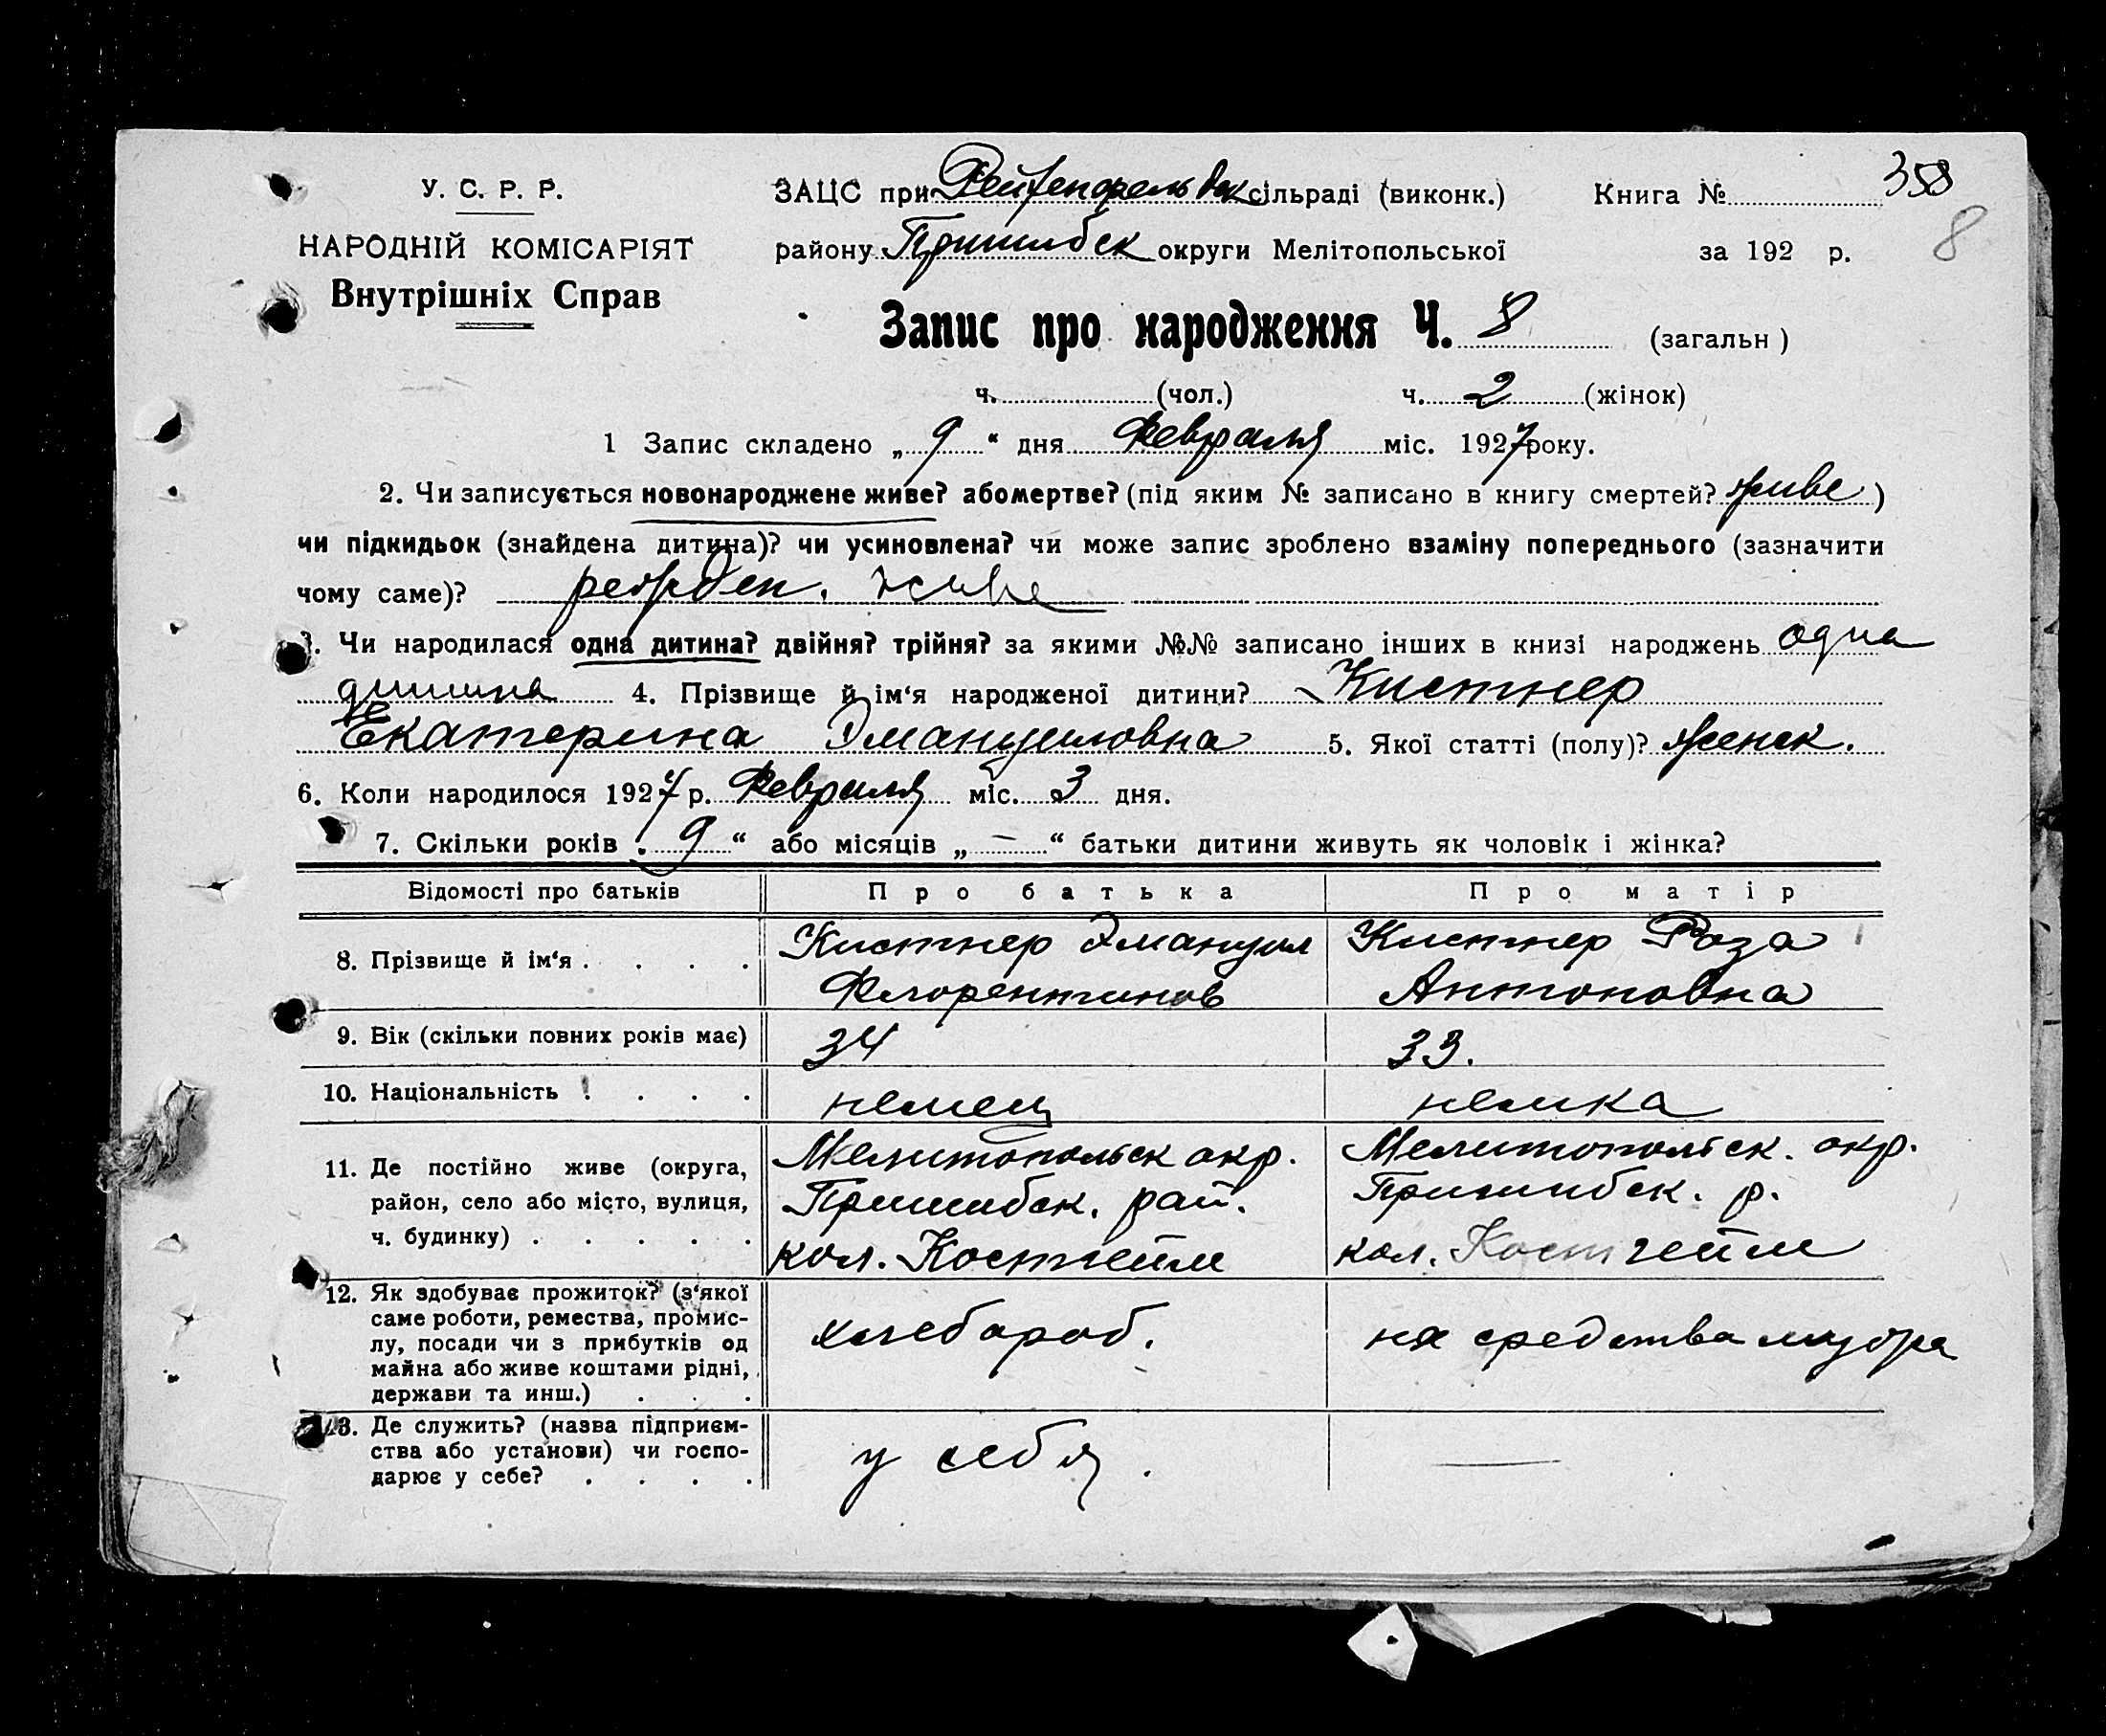 У. С. Р. Р.
НАРОДНІЙ КОМІСАРІЯТ
Внутрішніх Справ
ЗАЦС при Рейхенфельдск сільраді (виконк.) Книга № 358
району Пришибск округи Мелітопольської за 192 р. 8
Запис про народження Ч. 8 (загальн)
ч. (чол.) ч. 2 (жінок)
1 Запис складено „ 9 “ дня Февраля міс. 1927 року.
2. Чи записується новонароджене живе? або мертве? (під яким № записано в книгу смертей? живе )
чи підкидьок (знайдена дитина)? чи усиновлена? чи може запис зроблено взаміну попереднього (зазначити
чому саме)? живе
3. Чи народилася одна дитина? двійня? трійня? за якими №№ записано інших в книзі народжень одна
дитина 4. Прізвище й ім‘я народженої дитини? Кистнер
Екатерина Эмануиловна 5. Якої статті (полу)? женск.
6. Коли народилося 1927 р. Февраля міс. 3 дня.
7. Скільки років „ 9 “ або місяців „ — “ батьки дитини живуть як чоловік і жінка?
Відомості про батьків Про батька Про матір
8. Прізвище й ім‘я . . . . Кистнер Эмануил Флорентинов Кистнер Роза Антоновна
9. Вік (скільки повних років має) 34 33.
10. Національність . . . . немец немка
11. Де постійно живе (округа,
район, село або місто, вулиця,
ч. будинку) . . . . .
Мелитопольск окр.
Пришибск. рай.
кол. Костгейм
Мелитопольск. окр.
Пришибск. р.
кол. Костгейм
12. Як здобуває прожиток? (з‘якої
саме роботи, ремества, промис-
лу, посади чи з прибутків од
майна або живе коштами рідні,
держави та инш.) . . .
хлебароб.
на средства мужа
13. Де служить? (назва підприєм-
ства або установи) чи госпо-
дарює у себе? . . . .
у себя.
—